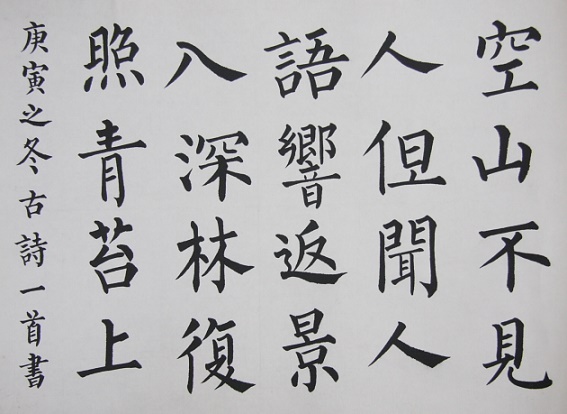 空山不見
人但聞人
語響返景
入深林復
照青苔上
庚寅之冬古詩一首書